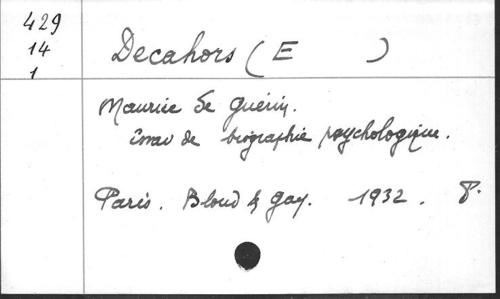 429
14
1
Decahors (E )
Maurice de Guérin.
Essai de biographie psychologique.
Paris. Bloud & Gay. 1932. 8°.